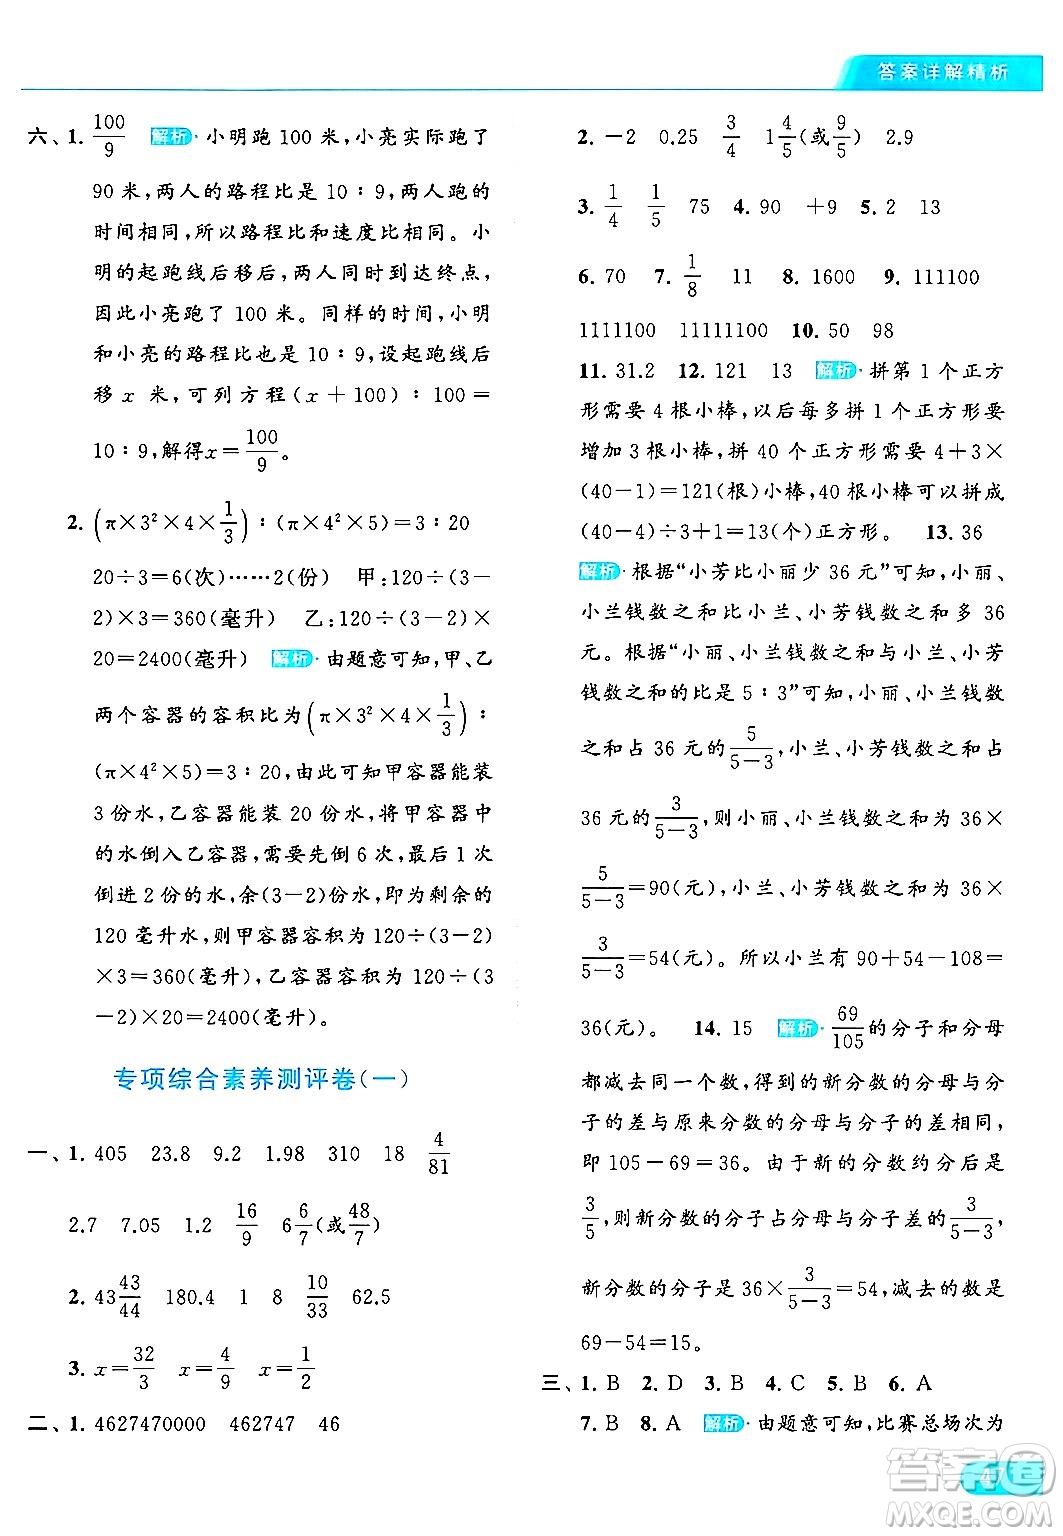 答案详解精析
六、1. 100/9 解析·小明跑 100 米,小亮实际跑了
90 米,两人的路程比是 10∶9,两人跑的
时间相同,所以路程比和速度比相同。小
明的起跑线后移后,两人同时到达终点,
因此小亮跑了 100 米。同样的时间,小明
和小亮的路程比也是 10∶9,设起跑线后
移 x 米,可列方程(x+100)∶100=
10∶9,解得x=100/9。
2. (π×3²×4×1/3)∶(π×4²×5)=3∶20
20÷3=6(次)……2(份) 甲:120÷(3-
2)×3=360(毫升) 乙:120÷(3-2)×
20=2400(毫升) 解析·由题意可知,甲、乙
两个容器的容积比为(π×3²×4×1/3)∶
(π×4²×5)=3∶20,由此可知甲容器能装
3 份水,乙容器能装 20 份水,将甲容器中
的水倒入乙容器,需要先倒 6 次,最后 1 次
倒进 2 份的水,余(3-2)份水,即为剩余的
120 毫升水,则甲容器容积为 120÷(3-2)
×3=360(毫升),乙容器容积为 120÷(3
-2)×20=2400(毫升)。
专项综合素养测评卷(一)
一、1. 405 23.8 9.2 1.98 310 18 4/81
2.7 7.05 1.2 16/9 6 6/7(或48/7)
2. 43 43/44 180.4 1 8 10/33 62.5
3. x=32/3 x=4/9 x=1/2
二、1. 4627470000 462747 46
2. -2 0.25 3/4 1 4/5(或9/5) 2.9
3. 1/4 1/5 75 4. 90 +9 5. 2 13
6. 70 7. 1/8 11 8. 1600 9. 111100
1111100 11111100 10. 50 98
11. 31.2 12. 121 13 解析·拼第 1 个正方
形需要 4 根小棒,以后每多拼 1 个正方形要
增加 3 根小棒,拼 40 个正方形需要 4+3×
(40-1)=121(根)小棒,40 根小棒可以拼成
(40-4)÷3+1=13(个)正方形。 13. 36
解析·根据“小芳比小丽少 36 元”可知,小丽、
小兰钱数之和比小兰、小芳钱数之和多 36
元。根据“小丽、小兰钱数之和与小兰、小芳
钱数之和的比是 5∶3”可知,小丽、小兰钱数
之和占 36 元的5/(5-3),小兰、小芳钱数之和占
36 元的3/(5-3),则小丽、小兰钱数之和为 36×
5/(5-3)=90(元),小兰、小芳钱数之和为 36×
3/(5-3)=54(元)。所以小兰有 90+54-108=
36(元)。 14. 15 解析·69/105的分子和分母
都减去同一个数,得到的新分数的分母与分
子的差与原来分数的分母与分子的差相同,
即 105-69=36。由于新的分数约分后是
3/5,则新分数的分子占分母与分子差的3/(5-3),
新分数的分子是 36×3/(5-3)=54,减去的数是
69-54=15。
三、1. B 2. D 3. B 4. C 5. A 6. A
7. B 8. A 解析·由题意可知,比赛总场次为
47
答案圈
MXQE.COM